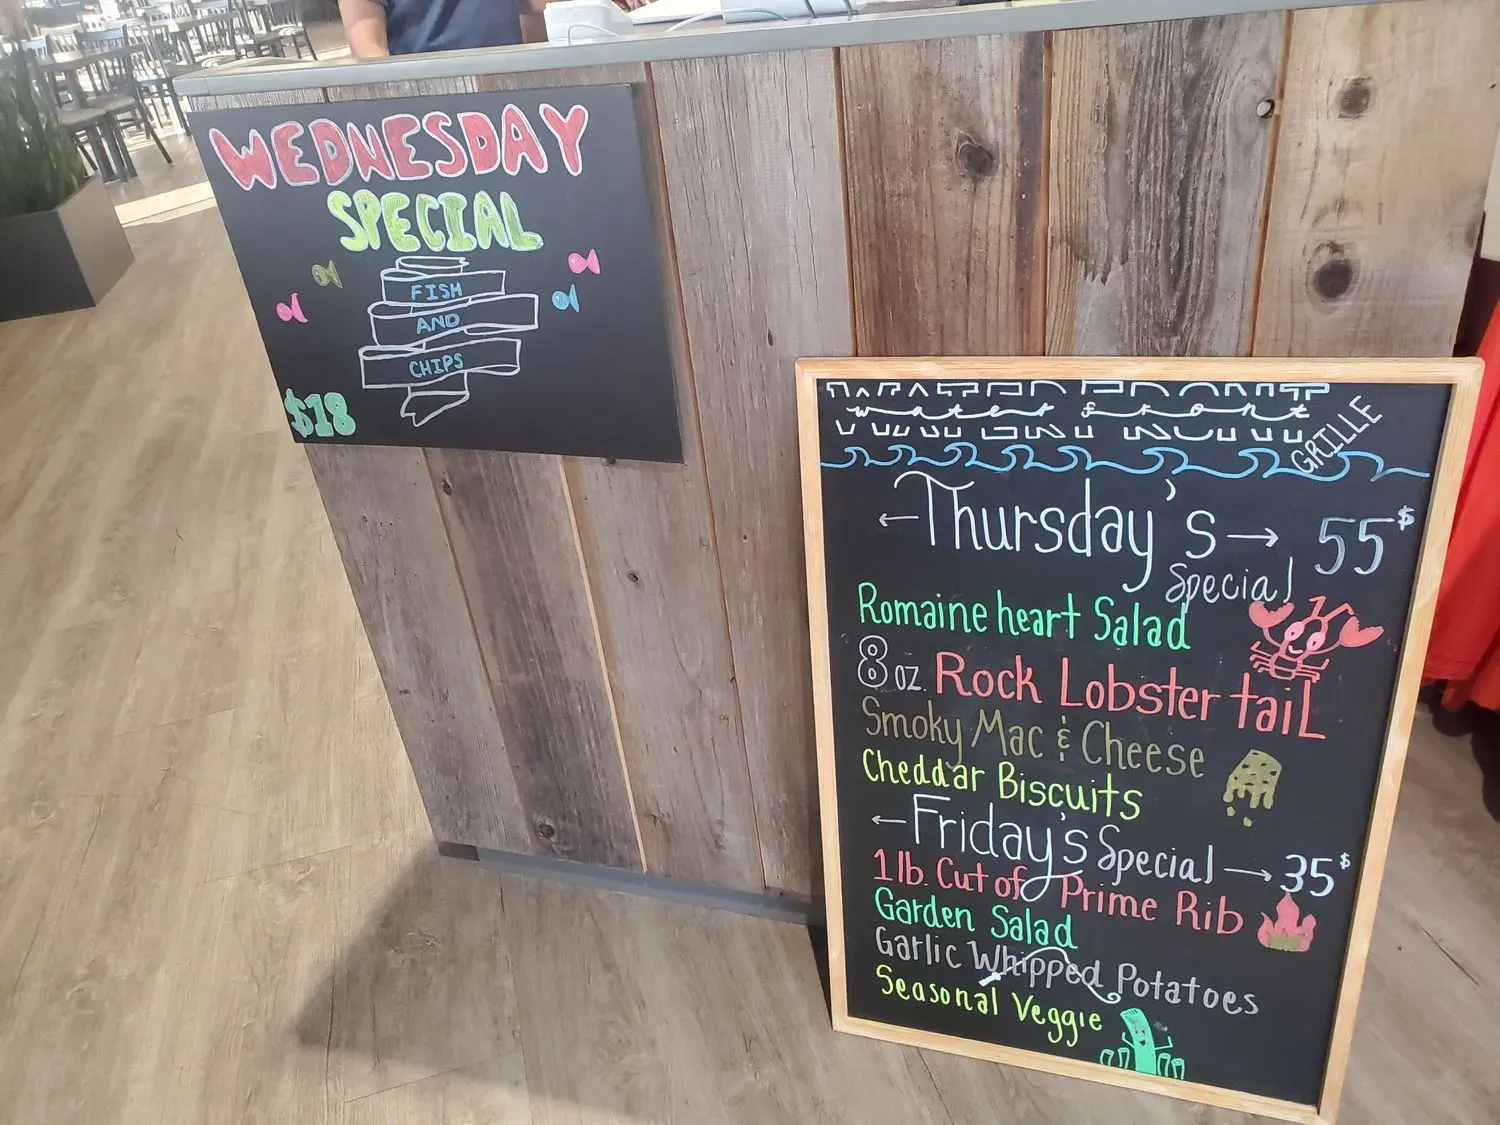 WEDNESDAY
SPECIAL
FISH
AND
CHIPS
$18
waterfront
GRILLE
Thursday's 55$
Special
Romaine heart Salad
8 oz. Rock Lobster tail
Smoky Mac & Cheese
Cheddar Biscuits
Friday's Special 35$
1 lb. Cut of Prime Rib
Garden Salad
Garlic Whipped Potatoes
Seasonal Veggie